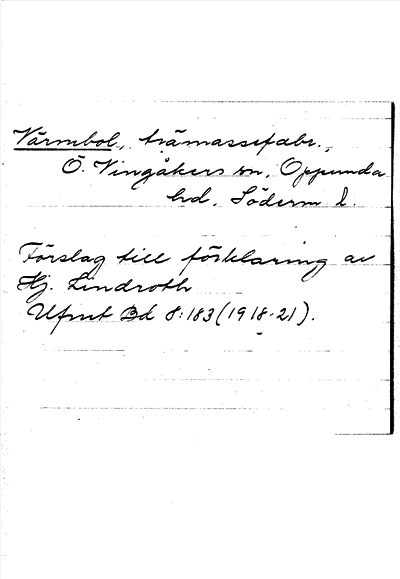 Värmbol, trämassefabr.,
Ö. Vingåkers sn, Oppunda
hd, Söderm l.
Förslag till förklaring av
Hj. Lindroth
Ufmt Bd 8:183 (1918-21).